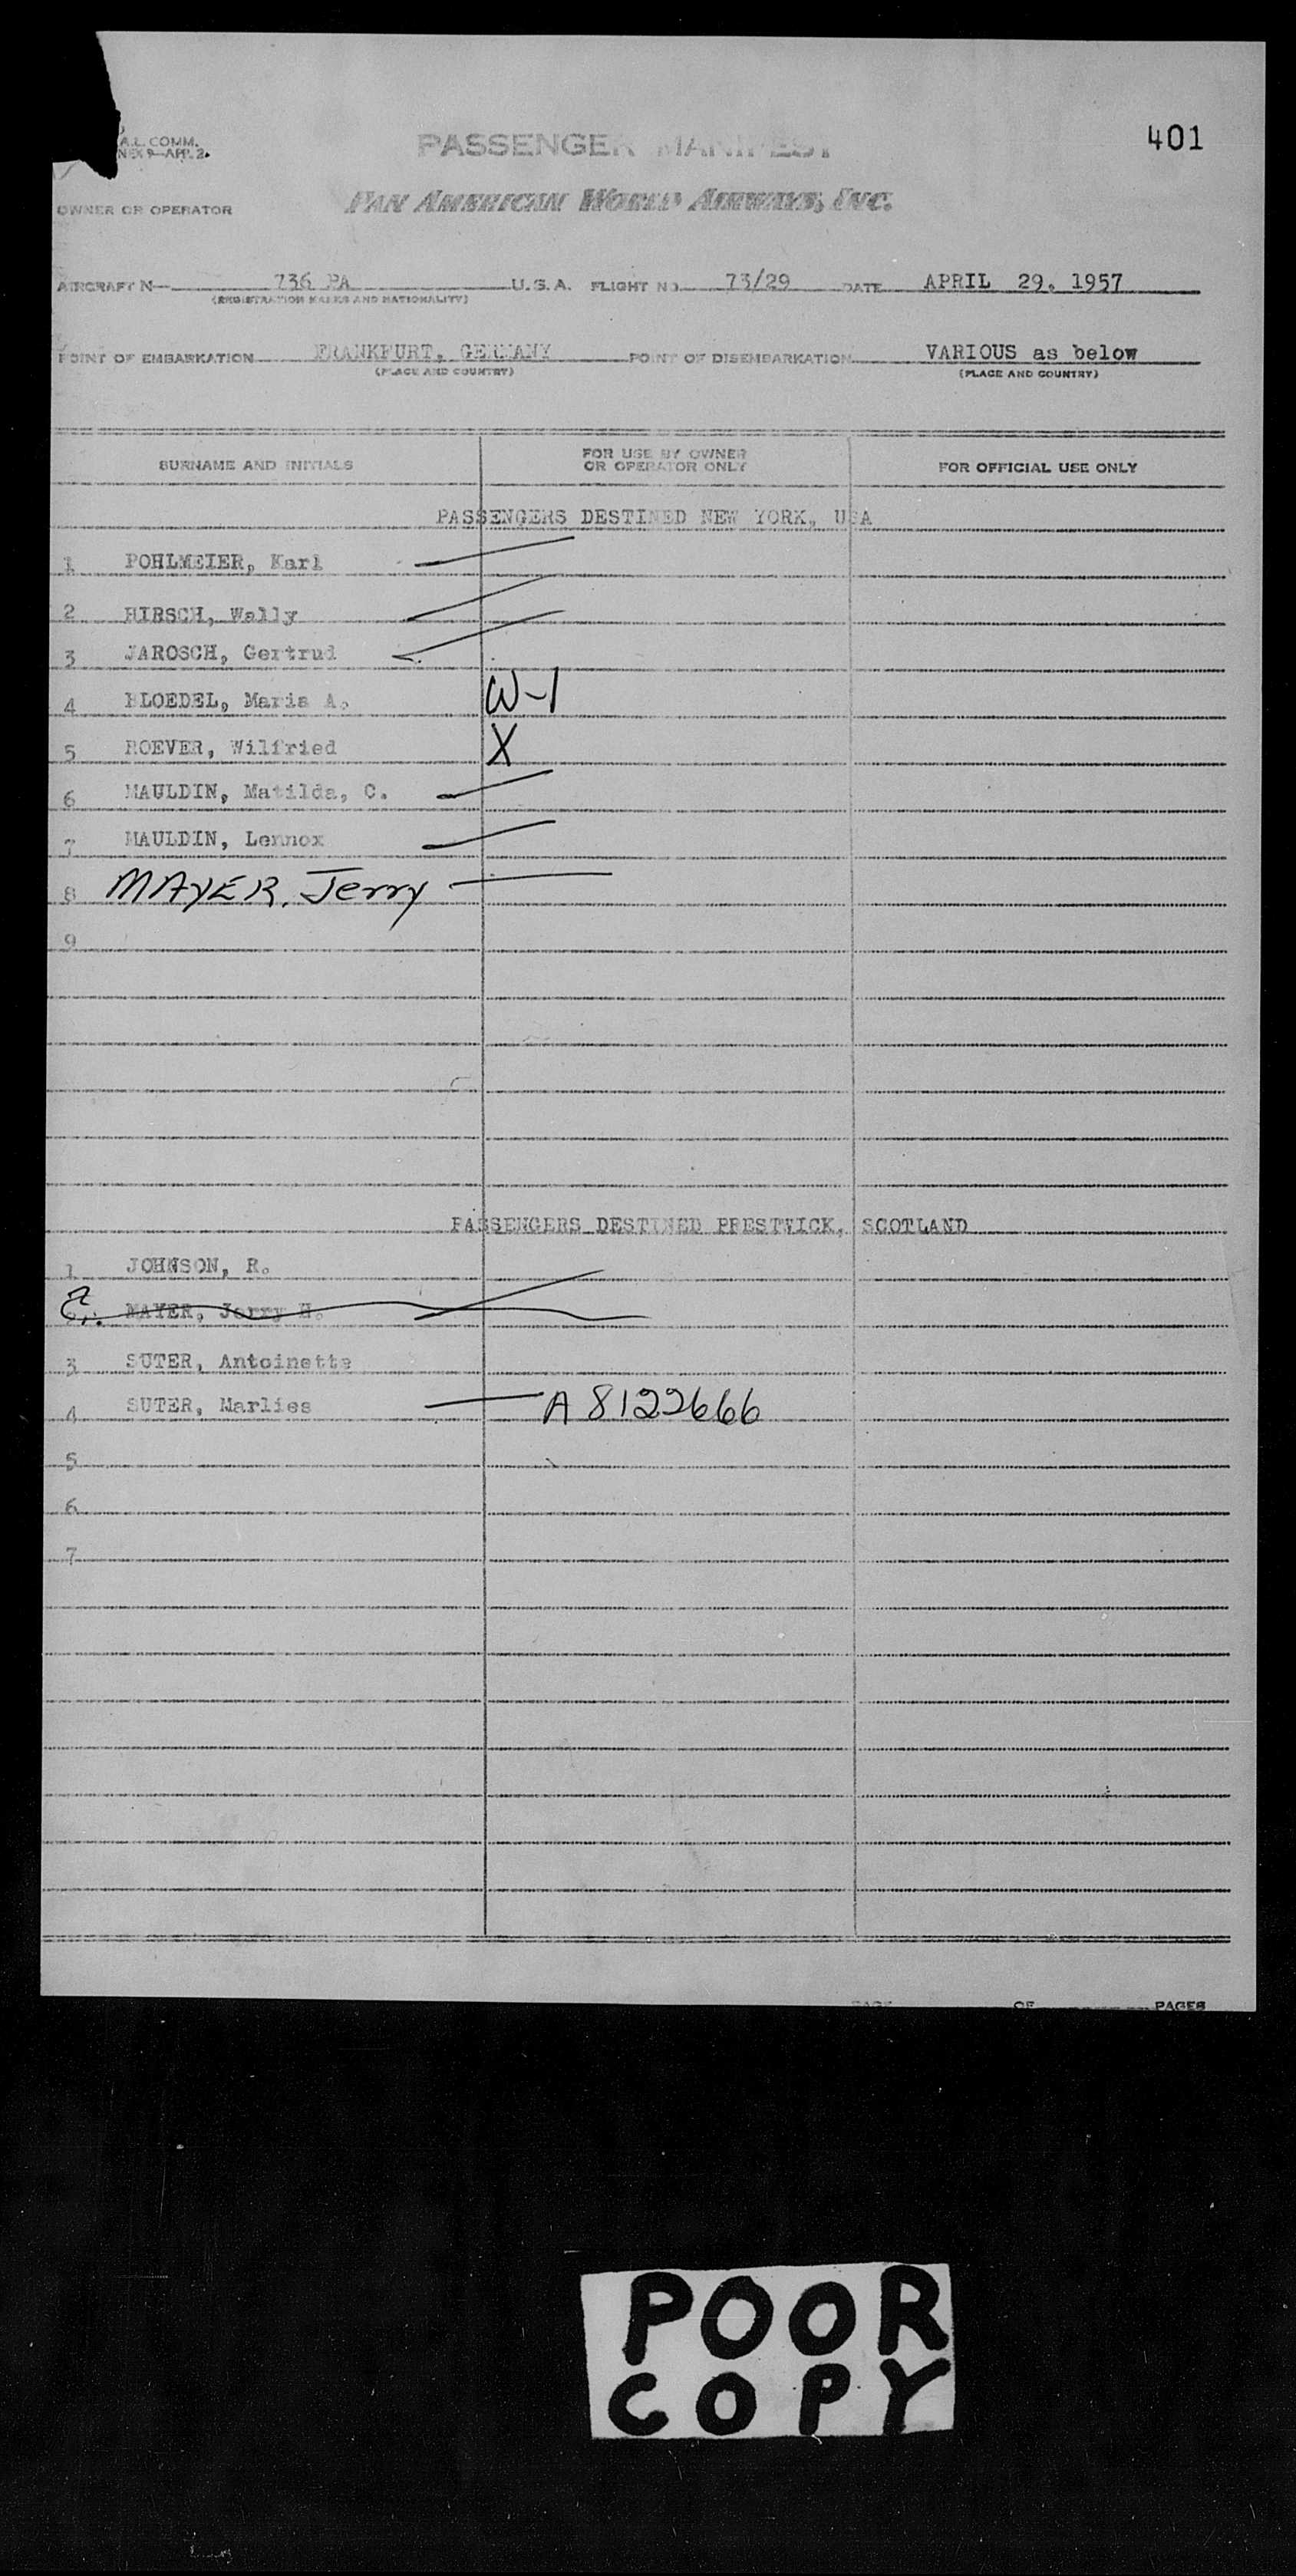 401
A.L. COMM.
PASSENGER MANIFEST
NEX 9—APP. 2.
OWNER OR OPERATOR PAN AMERICAN WORLD AIRWAYS, INC.
AIRCRAFT N— 736 PA U.S.A. FLIGHT NO. 73/29 DATE APRIL 29, 1957
(REGISTRATION MARKS AND NATIONALITY)
POINT OF EMBARKATION FRANKFURT, GERMANY POINT OF DISEMBARKATION VARIOUS as below
(PLACE AND COUNTRY) (PLACE AND COUNTRY)
SURNAME AND INITIALS FOR USE BY OWNER OR OPERATOR ONLY FOR OFFICIAL USE ONLY
PASSENGERS DESTINED NEW YORK, USA
1 POHLMEIER, Karl
2 HIRSCH, Wally
3 JAROSCH, Gertrud
4 BLOEDEL, Maria A. W-1
5 ROEVER, Wilfried X
6 MAULDIN, Matilda, C.
7 MAULDIN, Lennox
8 MAYER, Jerry
9
PASSENGERS DESTINED PRESTWICK, SCOTLAND
1 JOHNSON, R.
2. MAYER, Jerry H.
3 SUTER, Antoinette
4 SUTER, Marlies — A 8122666
5
6
7
PAGE OF PAGES
POOR
COPY